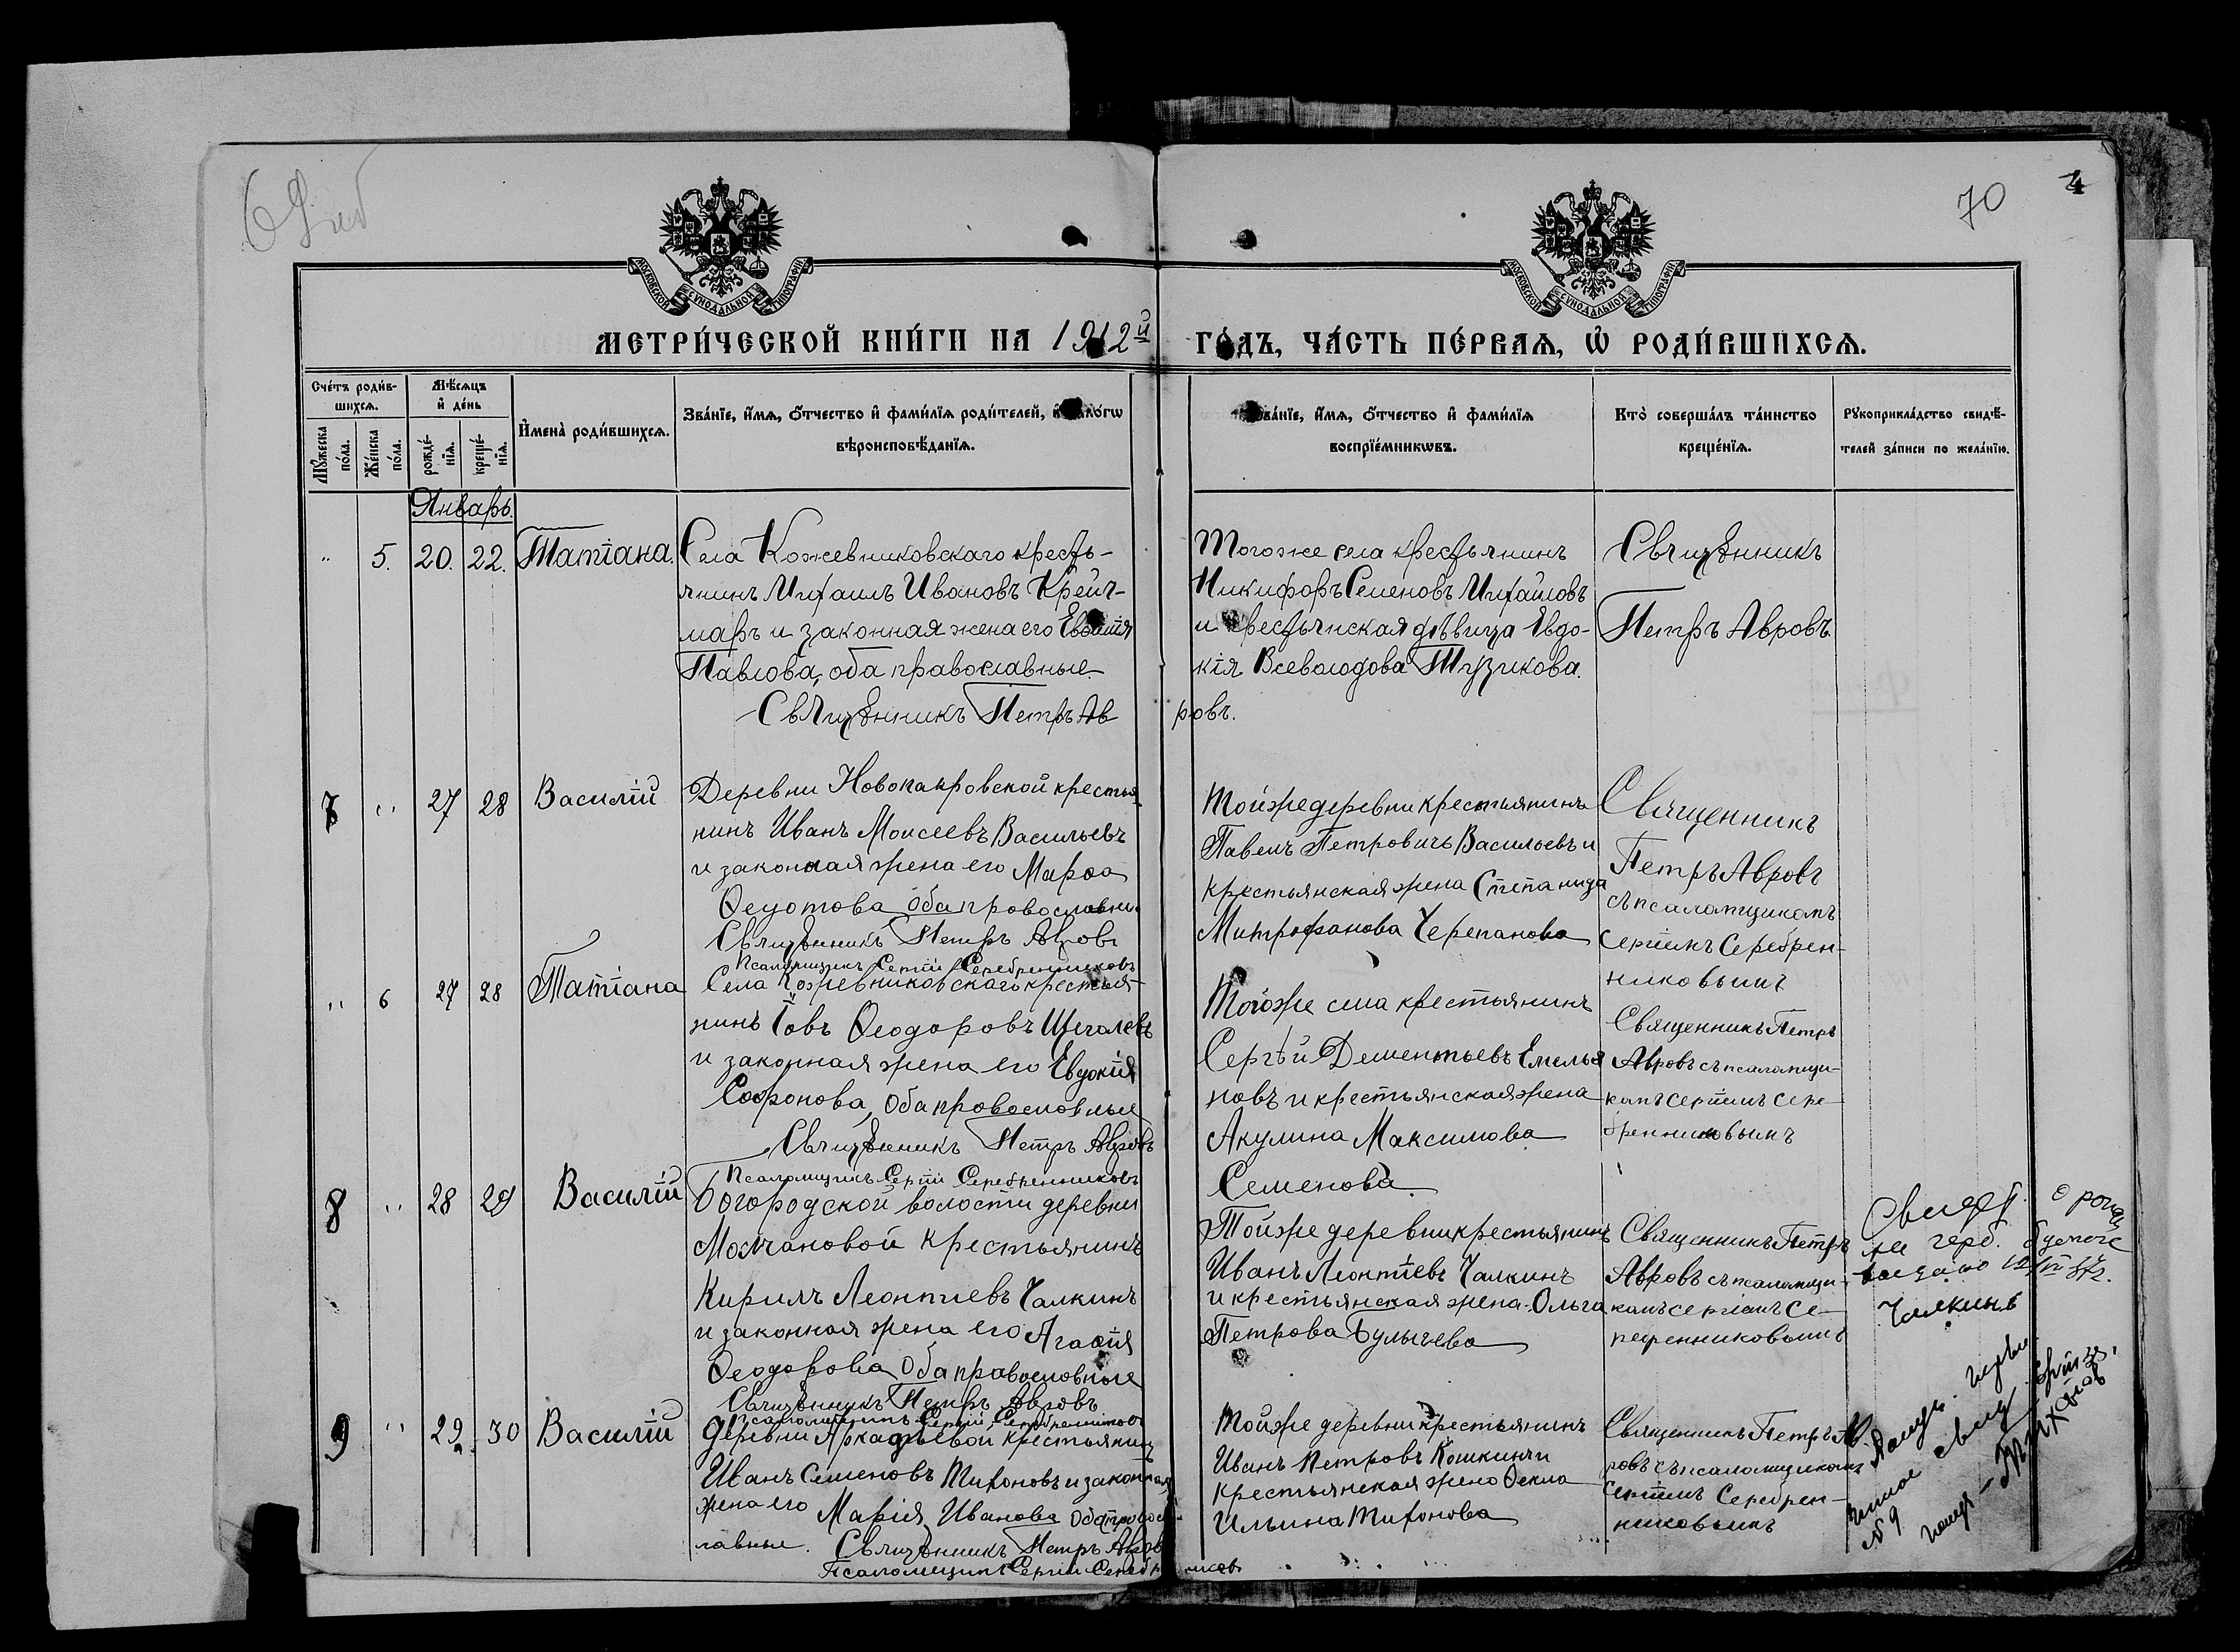 70
4
МОСКОВСКОЙ СѴНОДАЛЬНОЙ ТИПОГРАФІИ
МОСКОВСКОЙ СѴНОДАЛЬНОЙ ТИПОГРАФІИ
МЕТРИ́ЧЕСКОЙ КНИ́ГИ НА 1912й
ГО́ДЪ, ЧА́СТЬ ПЕ́РВАЯ, Ѡ РОДИ́ВШИХСЯ.
Сче́тъ роди́в-
шихся.
Мѣ́сяцъ
и҆ де́нь
Мꙋ́жеска
по́ла.
Же́нска
по́ла.
рожде́-
нїя.
креще́-
нїя.
И҆мена̀ роди́вшихся.
Зва́нїе, и҆́мя, ѻ҆́тчество и҆ фами́лїя роди́телей, и҆
вѣроисповѣ́данїя.
Зва́нїе, и҆́мя, ѻ҆́тчество и҆ фами́лїя
воспрїе́мникѡвъ.
Кто̀ соверша́лъ та́инство
креще́нїя.
Рꙋкоприкла́дство свидѣ́-
телей за́писи по жела́нїю.
Январь.
" 5. 20. 22. Татіана.
Села Кожевниковскаго кресть-
янинъ Михаилъ Ивановъ Крейч-
маръ и законная жена его
Павлова, оба православные.
Священникъ Петръ Ав
ровъ.
Тогоже села крестьянинъ
Никифоръ Семеновъ Михайловъ
и крестьянская дѣвица Евдо-
кія Всеволодова Тузикова.
Священникъ
Петръ Авровъ.
7 " 27 28 Василій
Деревни Новопакровской крестья
нинъ Иванъ Моисеевъ Васильевъ
и законная жена его Марѳа
Ѳедотова оба провославны.
Священникъ Петръ Авровъ
Псаломщикъ Сергій Серебренниковъ
Тойже деревни крестьянинъ
Павелъ Петровичъ Васильевъ и
крестьянская жена Степанида
Митрофанова Черепанова
Священникъ
Петръ Авровъ
съ псаломщикомъ
Сергіемъ Серебрен-
никовымъ
" 6 27 28 Татіана
Села Кожевниковскаго крестья-
нинъ Іовъ Ѳеодоровъ Щегалевъ
и законная жена его Евдокія
Софронова, оба провословные
Священникъ Петръ Авровъ
Псаломщикъ Сергій Серебренниковъ
Тогоже села крестьянинъ
Сергѣй Дементьевъ Емелья
новъ и крестьянская жена
Акулина Максимова
Семенова.
Священникъ Петръ
Авровъ съ псаломщи-
комъ Сергіемъ Сере
бренниковымъ
8 " 28 29 Василій
Богородской волости деревни
Молчановой крестьянинъ
Кирилъ Леонтиевъ Чалкинъ
и законная жена его Агаѳія
Ѳеодорова оба православные
Священникъ Петръ Авровъ.
Псаломщикъ Сергій Серебренниковъ
Тойже деревни крестьянинъ
Иванъ Леонтіевъ Чалкинъ
и крестьянская жена Ольга
Петрова Булычева
Священникъ Петръ
Авровъ съ псаломщи-
комъ Сергіемъ Се-
ребренниковымъ
Свидет.
на герб.
Чалкинъ
9 " 29 30 Василій
Деревни Аркадьевой крестьянинъ
Иванъ Семеновъ Тихоновъ и законная
жена его Марія Иванова оба провос-
лавные. Священникъ Петръ Авров
Псаломщикъ Сергій Серебр
никовъ
Тойже деревни крестьянинъ
Иванъ Петровъ Кошкинъ и
крестьянская жена Ѳекла
Ильина Тихонова
Священникъ Петръ Ав
ровъ съ псаломщикомъ
Сергіемъ Серебрен-
никовымъ
№ 9